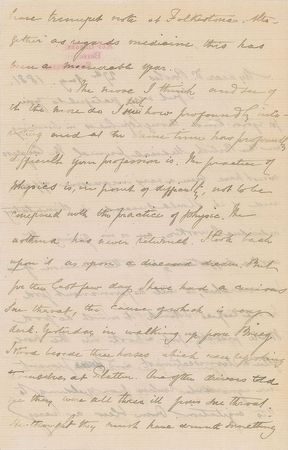 have triumphant note at Folkestone. Alto-
gether as regards medicine this has
been a memorable year.
The more I think and see of
it the more do I feel how profoundly inte-
resting and at the same time how profoundly
difficult your profession is. The practice of
Physics is, in point of difficulty, not to be
compared with the practice of Physic. The
asthma has never returned. I look back
upon it as upon a diseased dream. But
for the last few days I have had a curious
sore throat, the cause of which is very
dark. Yesterday in walking up from Brieg
I stood beside three horses, which were
One of the drivers told
me they were all three ill from sore throat
he thought they must have drunk something